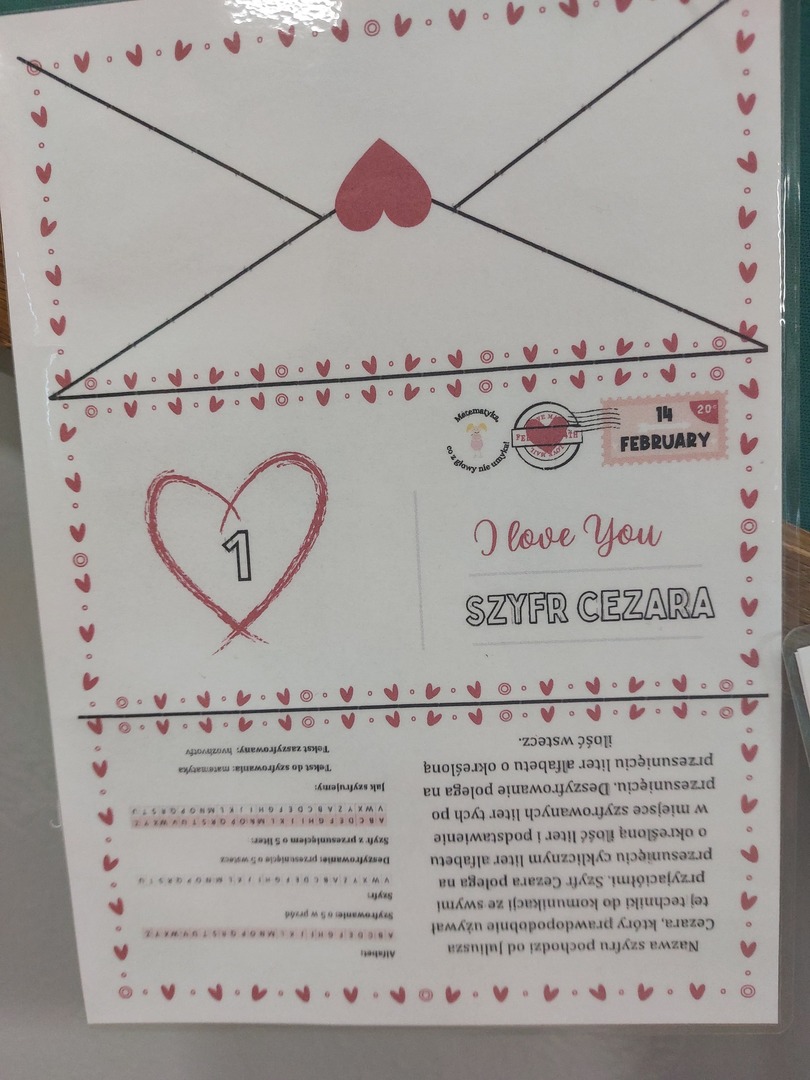 Matematyka,
co z głowy nie umyka!
14
FEBRUARY
20¢
1
I love You
SZYFR CEZARA
Nazwa szyfru pochodzi od Juliusza
Cezara, który prawdopodobnie używał
tej techniki do komunikacji ze swymi
przyjaciółmi. Szyfr Cezara polega na
przesunięciu cyklicznym liter alfabetu
o określoną ilość liter i podstawienie
w miejsce szyfrowanych liter tych po
przesunięciu. Deszyfrowanie polega na
przesunięciu liter alfabetu o określoną
ilość wstecz.
Alfabet:
A B C D E F G H I J K L M N O P Q R S T U V W X Y Z
Szyfrowanie: o 5 w przód
Szyfr:
V W X Y Z A B C D E F G H I J K L M N O P Q R S T U
Deszyfrowanie: przesunięcie o 5 wstecz
Szyfr z przesunięciem o 5 liter:
A B C D E F G H I J K L M N O P Q R S T U V W X Y Z
V W X Y Z A B C D E F G H I J K L M N O P Q R S T U
Jak szyfrujemy:
Tekst do szyfrowania: matematyka
Tekst zaszyfrowany: